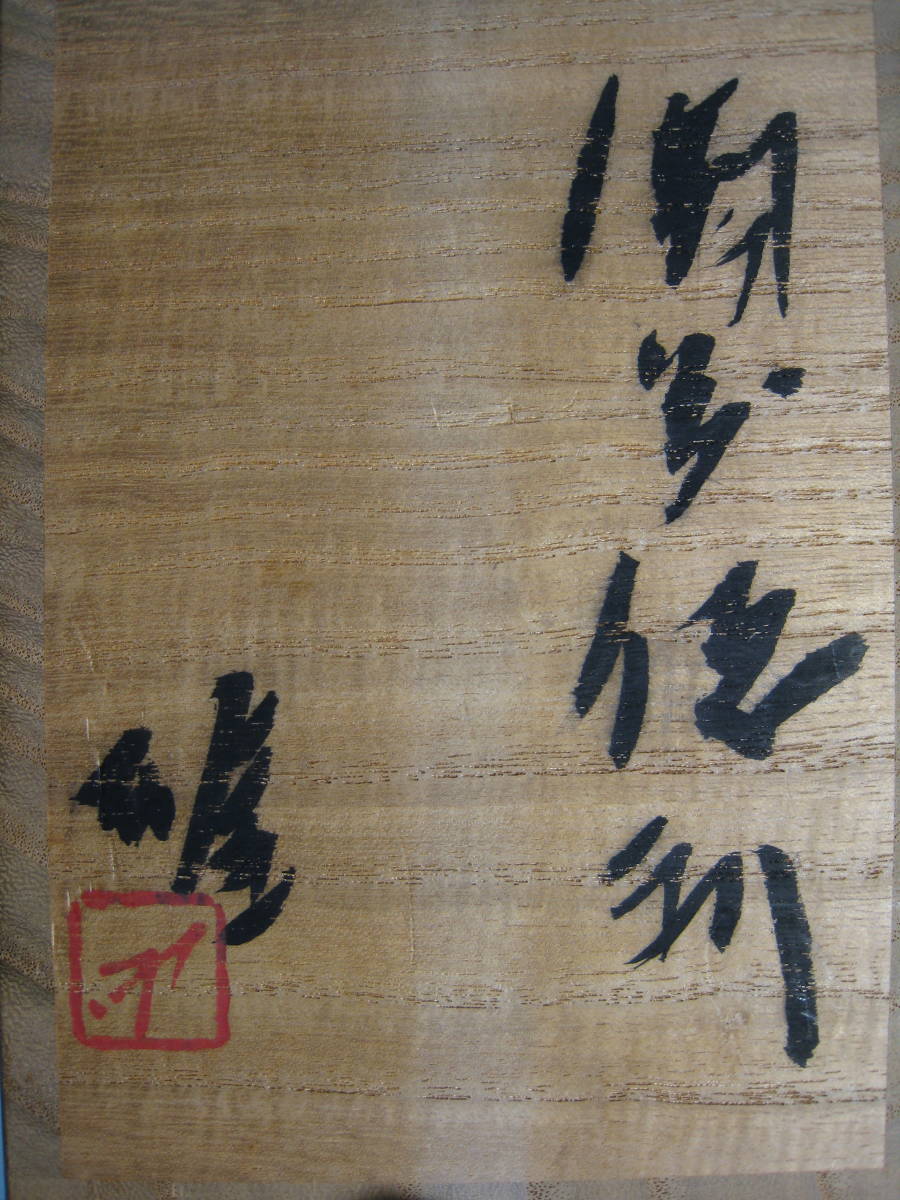 備前徳利